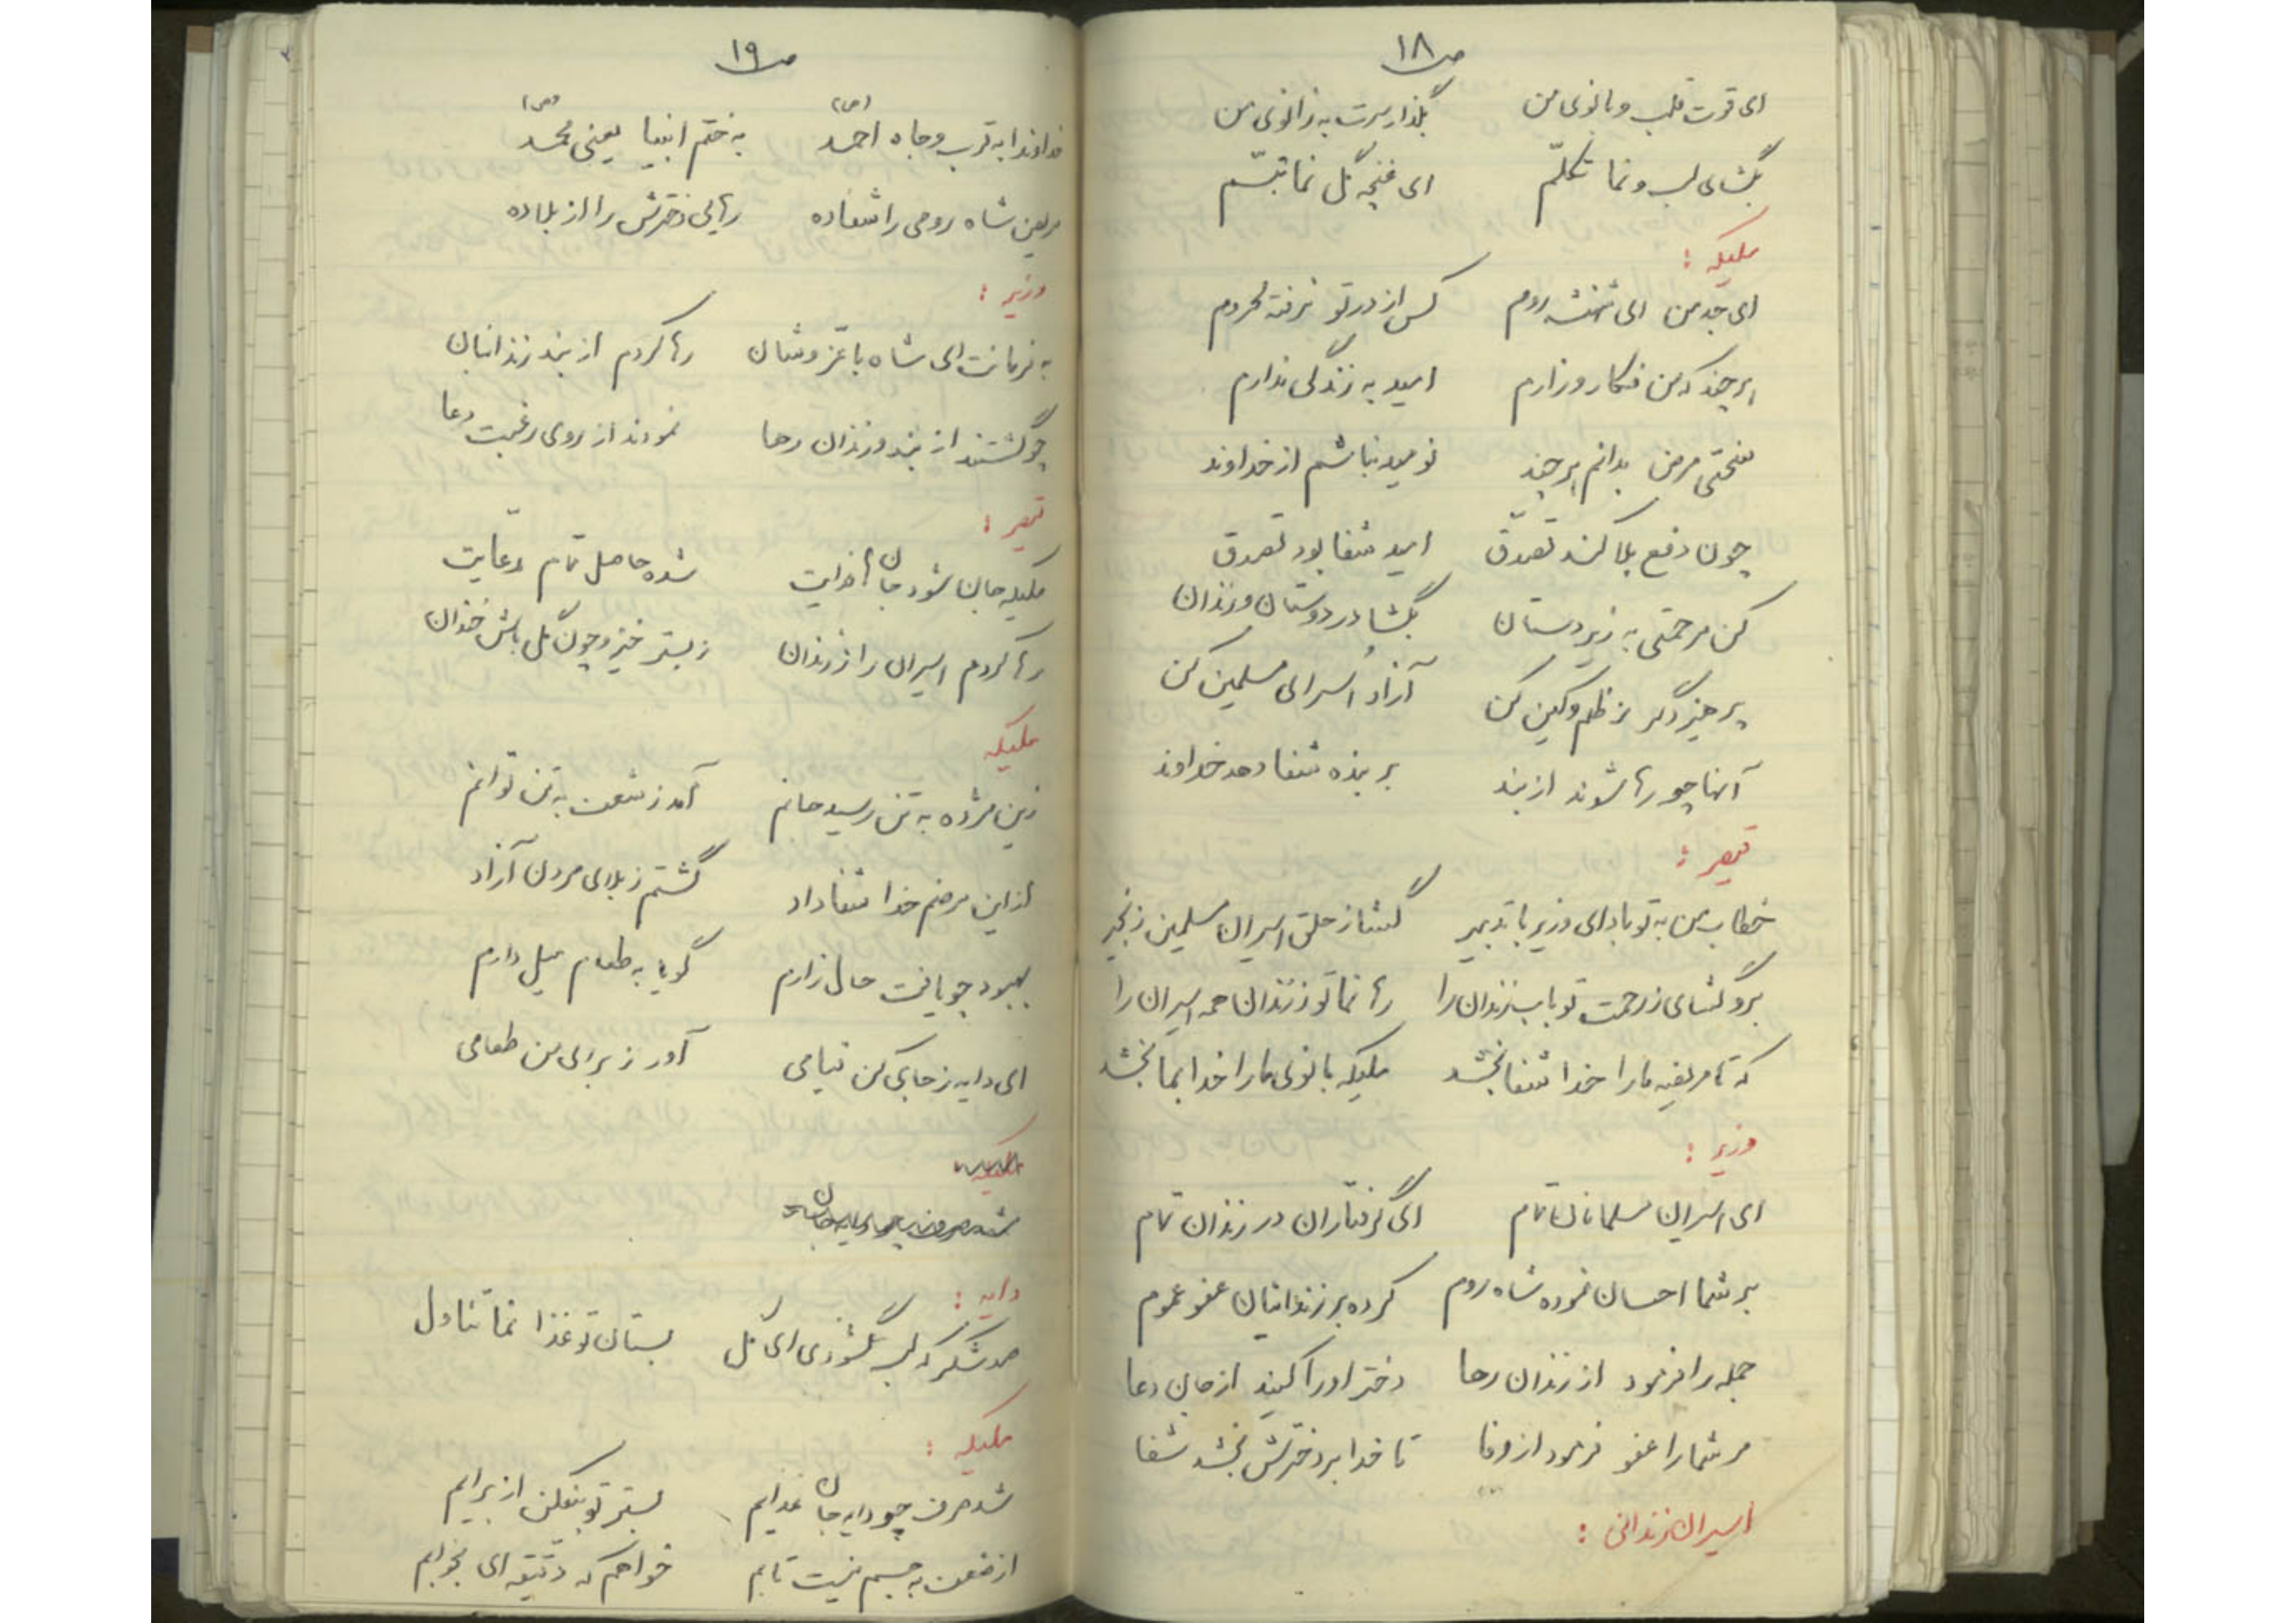 ص ۱۸
ای قوت قلب و بانوی من بگذار سرت به زانوی من
بگشای لب و نما تکلّم ای غنچه گل نما تبسّم
ملیکه :
ای جد من ای شهنشه روم کس از در تو نرفته محروم
هر چند که من فکار و زارم امید به زندگی ندارم
سختی مرض بدانم هر چند نومید نباشم از خداوند
چون دفع بلا کند تصدّق امید شفا بود تصدق
کن مرحمتی به زیر دستان بگشا در دوستان و زندان
پرهیز دگر ز ظلم و کین کن آزاد اُسرای مسلمین کن
آنها چو رها شوند از بند بر بنده شفا دهد خداوند
قیصر :
خطاب من به تو باد ای وزیر با تدبیر گشا ز حلق اسیران مسلمین زنجیر
برو گشای ز رحمت تو باب زندان را رها نما تو ز زندان همه اسیران را
که تا مریضه ما را خدا شفا بخشد ملیکه بانوی ما را خدا بما بخشد
وزیر :
ای اسیران مسلمانان تمام ای گرفتاران در زندان تمام
بر شما احسان نموده شاه روم کرده بر زندانیان عفو عموم
جمله را فرمود از زندان رها دختر او را کنید از جان دعا
مر شما را عفو فرمود از وفا تا خدا بر دخترش بخشد شفا
اسیران زندانی :
ص ۱۹
خداوندا به قرب و جاه احمد (ص) به ختم انبیا یعنی محمّد (ص)
مریض شاه رومی را شفا ده رهایی دخترش را از بلا ده
وزیر :
به فرمانت ای شاه با عزّ و شان رها کردم از بند زندانیان
چو گشتند از بند و زندان رها نمودند از روی رغبت دعا
قیصر :
ملیکه جان شود جان ها فدایت شده حاصل تمام مدّعایت
رها کردم اسیران را ز زندان ز بستر خیز و چون گل باش خندان
ملیکه
زین مژده به تن رسید جانم آمد ز شعف به تن توانم
از این مرضم خدا شفا داد گشتم ز بلای مردن آزاد
بهبود چو یافت حال زارم گویا به طعام میل دارم
ای دایه ز جای کن قیامی آور ز برای من طعامی
ملیکه
شد صرف چو دایه جان
دایه :
صد شکر که لب گشودی ای گل بستان تو غذا نما تناول
ملیکه :
شد صرف چو دایه جان غذایم بستر تو بیفکن از برایم
از ضعف به جسم نیست تابم خواهم که دقیقه ای بخوابم